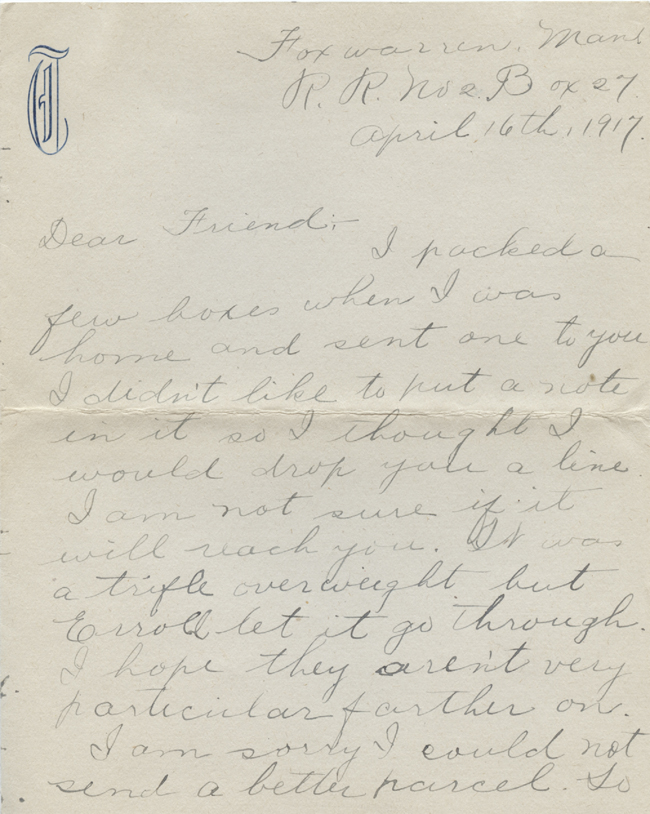 Foxwarren, Man.
R. R. No 2 Box 27
April, 16th, 1917.
Dear Friend:-
I packed a
few boxes when I was
home and sent one to you
I didn't like to put a note
in it so I thought I
would drop you a line.
I am not sure if it
will reach you. It was
a trifle overweight but
Erroll let it go through.
I hope they aren't very
particular farther on.
I am sorry I could not
send a better parcel. So